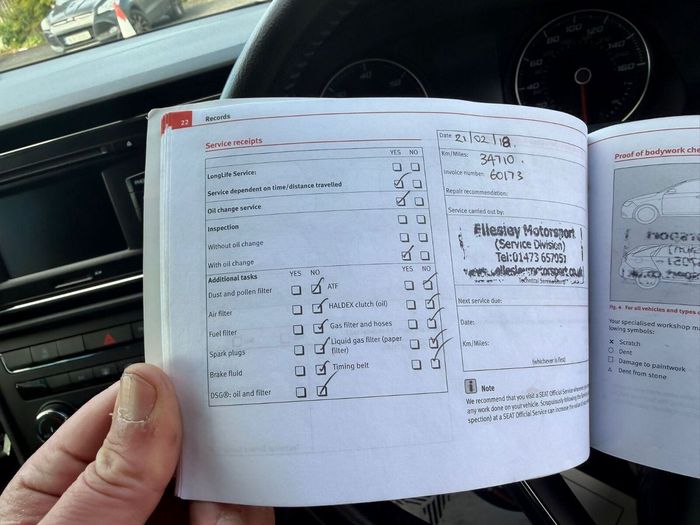 22 Records
Service receipts
YES NO
LongLife Service:
Service dependent on time/distance travelled
Oil change service
Inspection
Without oil change
With oil change
Additional tasks YES NO YES NO
Dust and pollen filter
ATF
Air filter
HALDEX clutch (oil)
Fuel filter
Gas filter and hoses
Spark plugs
Liquid gas filter (paper
filter)
Brake fluid
Timing belt
DSG®: oil and filter
Date 21/02/18.
Km/Miles: 34710.
Invoice number: 60173
Repair recommendation:
Service carried out by:
Ellesley Motorsport
(Service Division)
Tel:01473 657051
www.ellesleymotorsport.co.uk
Next service due:
Date:
Km/Miles:
(whichever is first)
Note
We recommend that you visit a SEAT Official Service
any work done on your vehicle. Scrupulously following the
spection) at a SEAT Official Service can increase the value
Proof of bodywork che
Fig. 4 For all vehicles and types
Your specialised workshop m
lowing symbols:
x Scratch
○ Dent
□ Damage to paintwork
△ Dent from stone